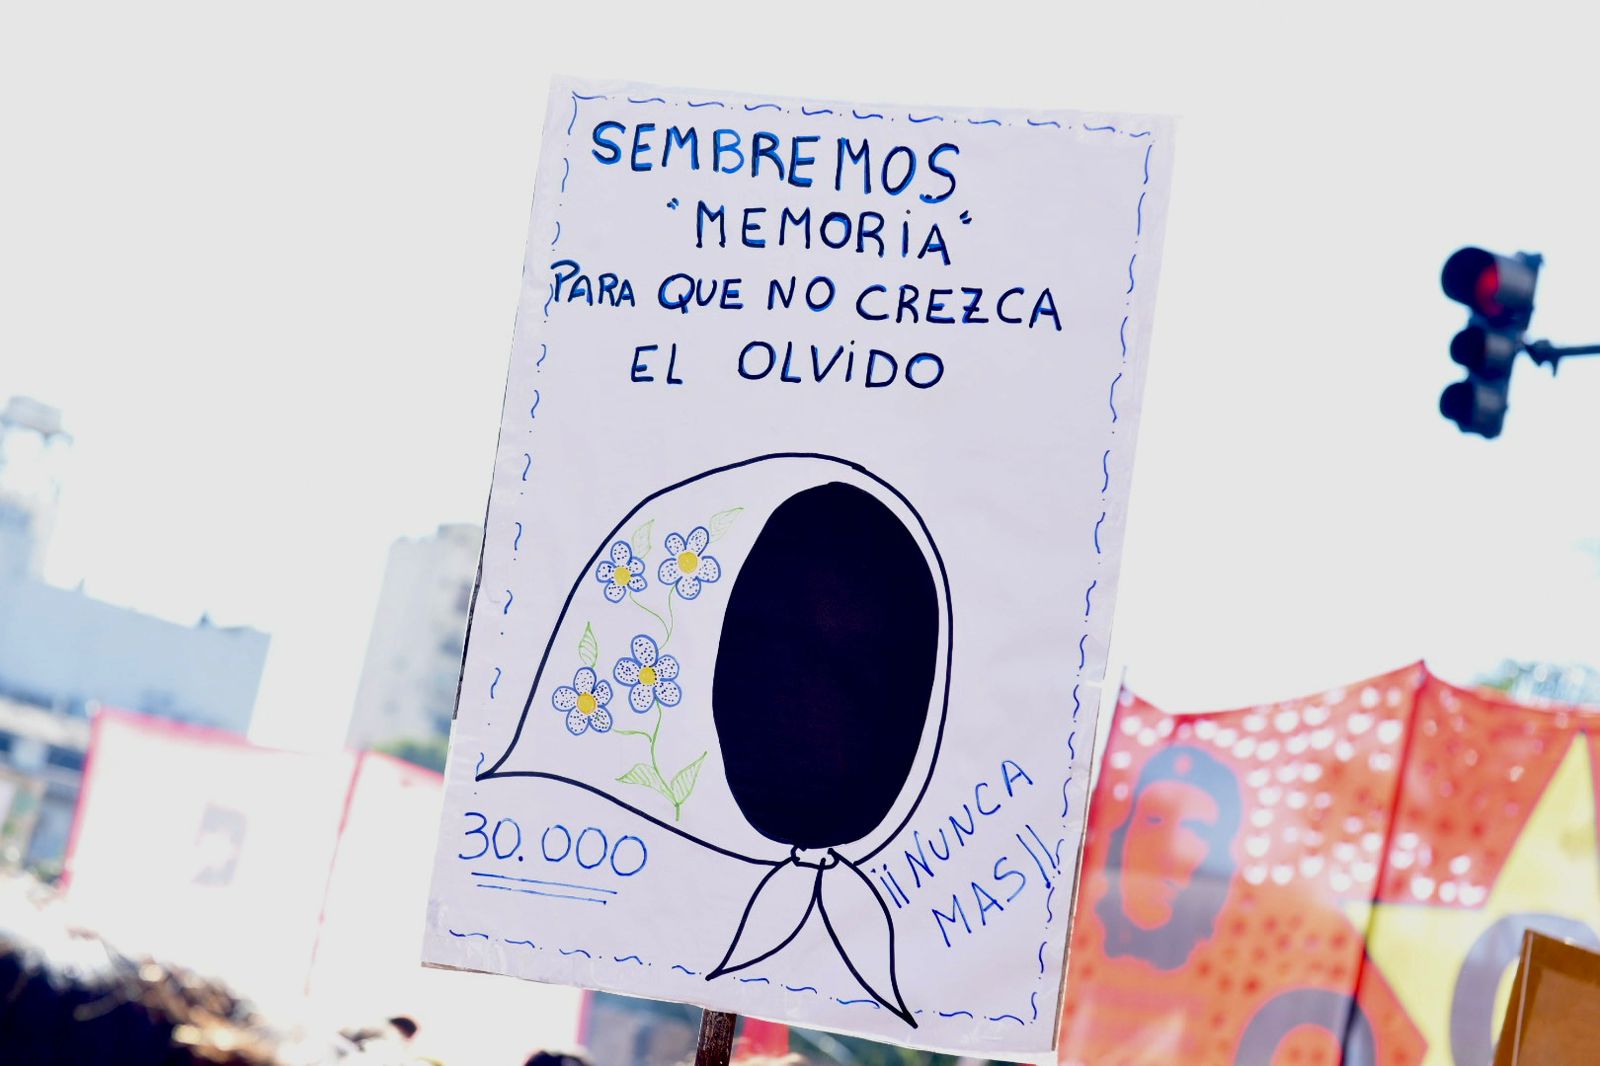 SEMBREMOS
"MEMORiA"
PARA QUE NO CREZCA
EL OLViDO
30.000
¡¡NUNCA
MAS!!